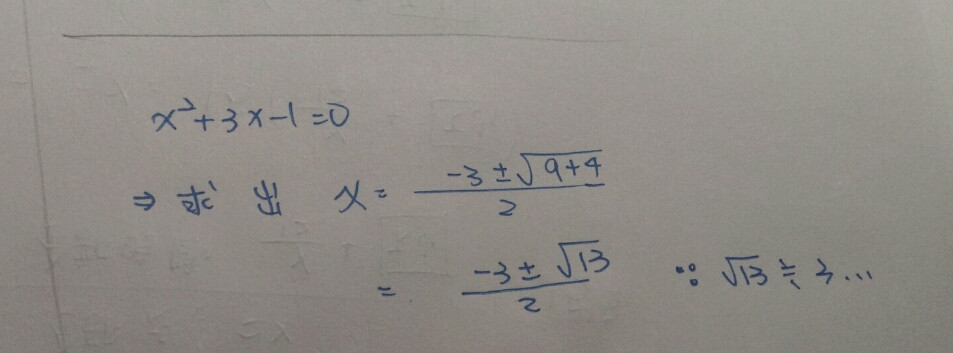 x²+3x-1=0
⇒ 求 出 x= (-3±√(9+4))/2
= (-3±√13)/2 ∵ √13≒3...